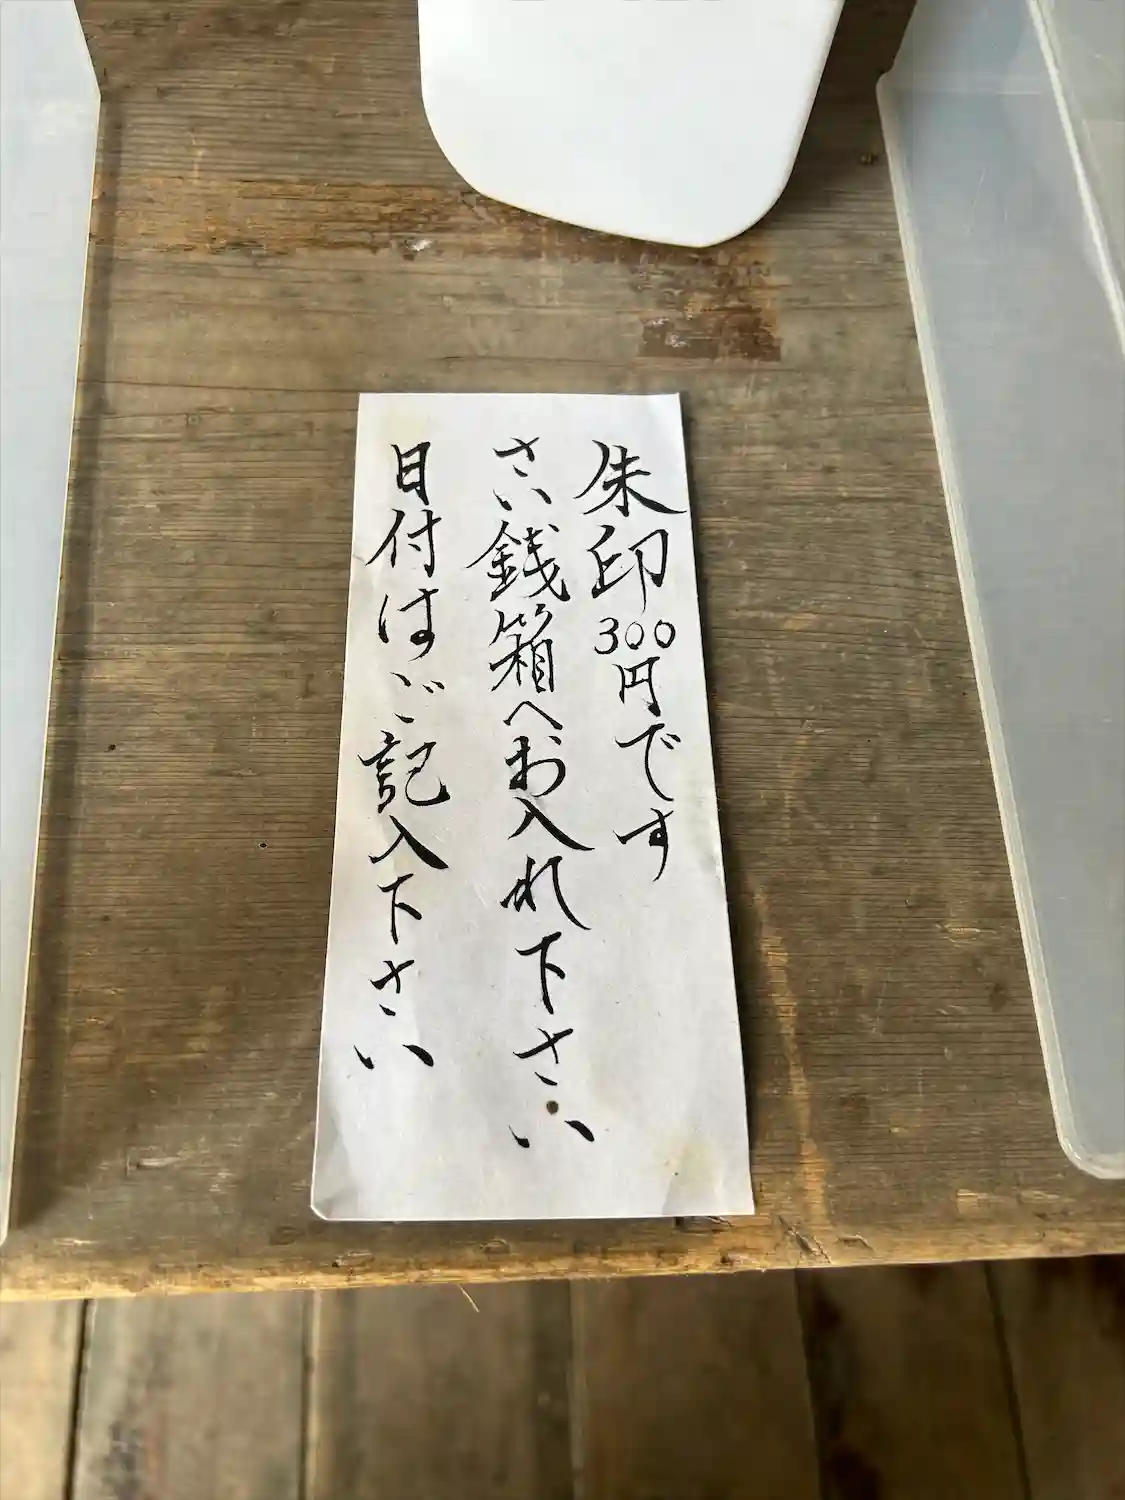 朱印300円です
さい銭箱へお入れ下さい
日付はご記入下さい